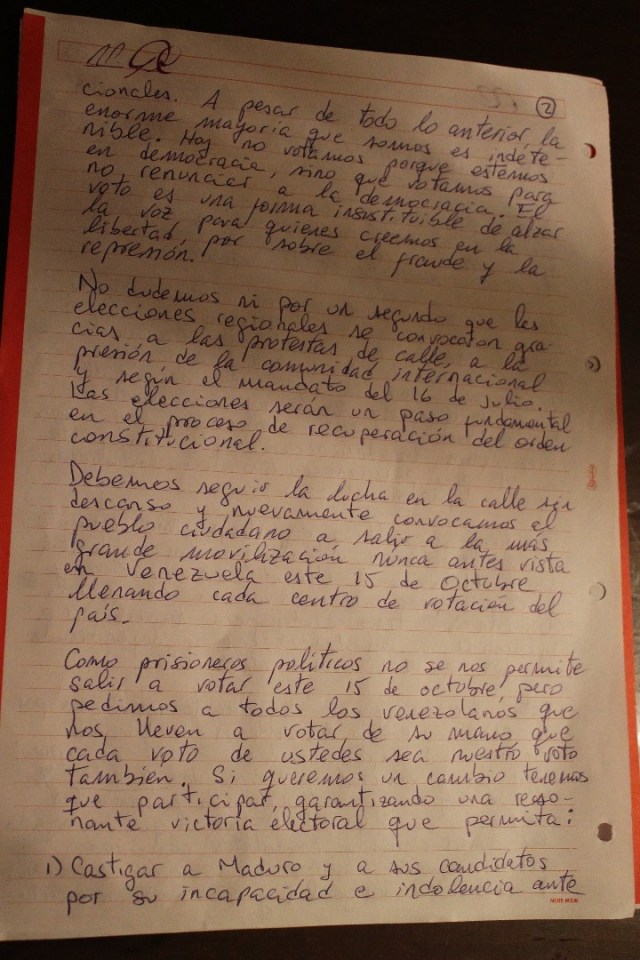 2
cionales. A pesar de todo lo anterior, la
enorme mayoría que somos es indete-
nible. Hoy no votamos porque estemos
en democracia, sino que votamos para
no renunciar a la democracia. El
voto es una forma insustituible de alzar
la voz para quienes creemos en la
libertad, por sobre el fraude y la
represión.
No dudemos ni por un segundo que las
elecciones regionales se convocaron gra-
cias a las protestas de calle, a la
presión de la comunidad internacional
y según el mandato del 16 de julio.
Las elecciones serán un paso fundamental
en el proceso de recuperación del orden
constitucional.
Debemos seguir la lucha en la calle sin
descanso y nuevamente convocamos al
pueblo ciudadano a salir a la más
grande movilización nunca antes vista
en Venezuela este 15 de Octubre
llenando cada centro de votación del
país.
Como prisioneros políticos no se nos permite
salir a votar este 15 de octubre, pero
pedimos a todos los venezolanos que
nos lleven a votar de su mano que
cada voto de ustedes sea nuestro voto
también. Si queremos un cambio tenemos
que participar, garantizando una reso-
nante victoria electoral que permita:
1) Castigar a Maduro y a sus candidatos
por su incapacidad e indolencia ante